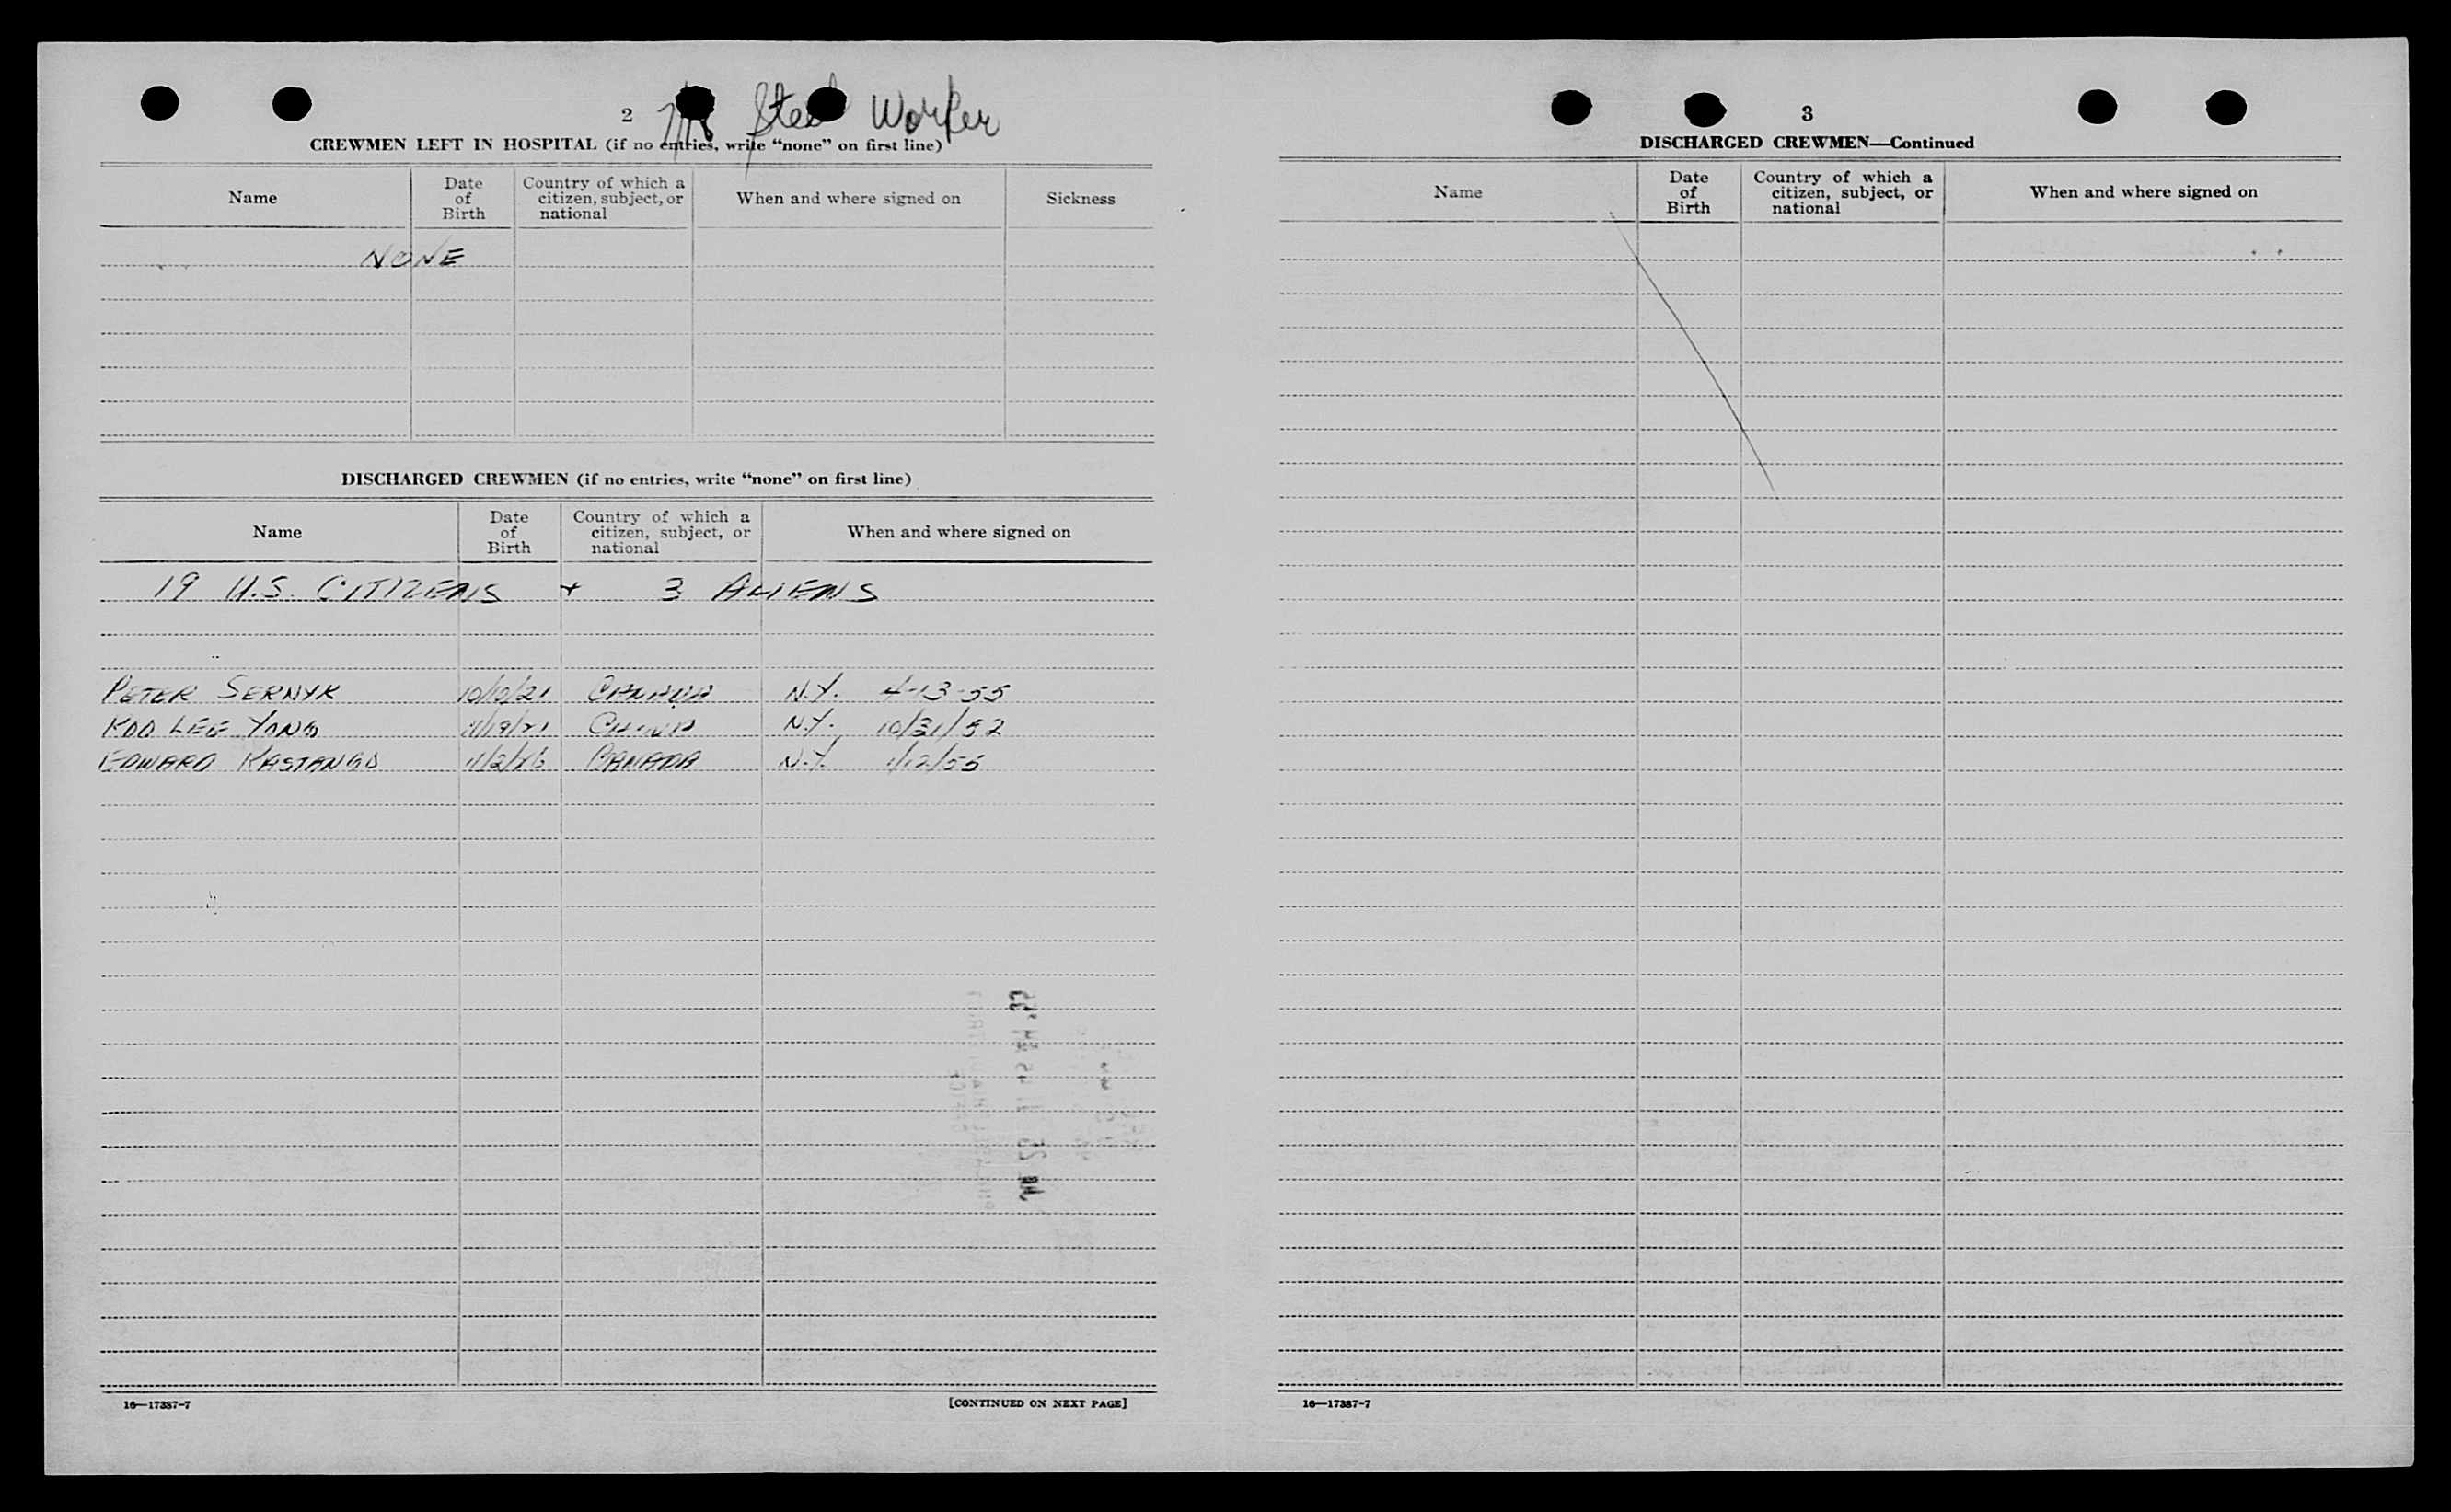 2
Steel Worker
CREWMEN LEFT IN HOSPITAL (if no entries, write “none” on first line)
Name
Date of Birth
Country of which a citizen, subject, or national
When and where signed on
Sickness
NONE
DISCHARGED CREWMEN (if no entries, write “none” on first line)
Name
Date of Birth
Country of which a citizen, subject, or national
When and where signed on
19 U.S. CITIZENS + 3 ALIENS
PETER SERNYK 10/10/21 CANADA N.Y. 4-13-55
KOO LEE YONG CHINA N.Y. 10/31/52
EDWARD KASTANGO CANADA N.Y. 1/12/55
16—17387-7
[CONTINUED ON NEXT PAGE]
3
DISCHARGED CREWMEN—Continued
Name
Date of Birth
Country of which a citizen, subject, or national
When and where signed on
16—17387-7